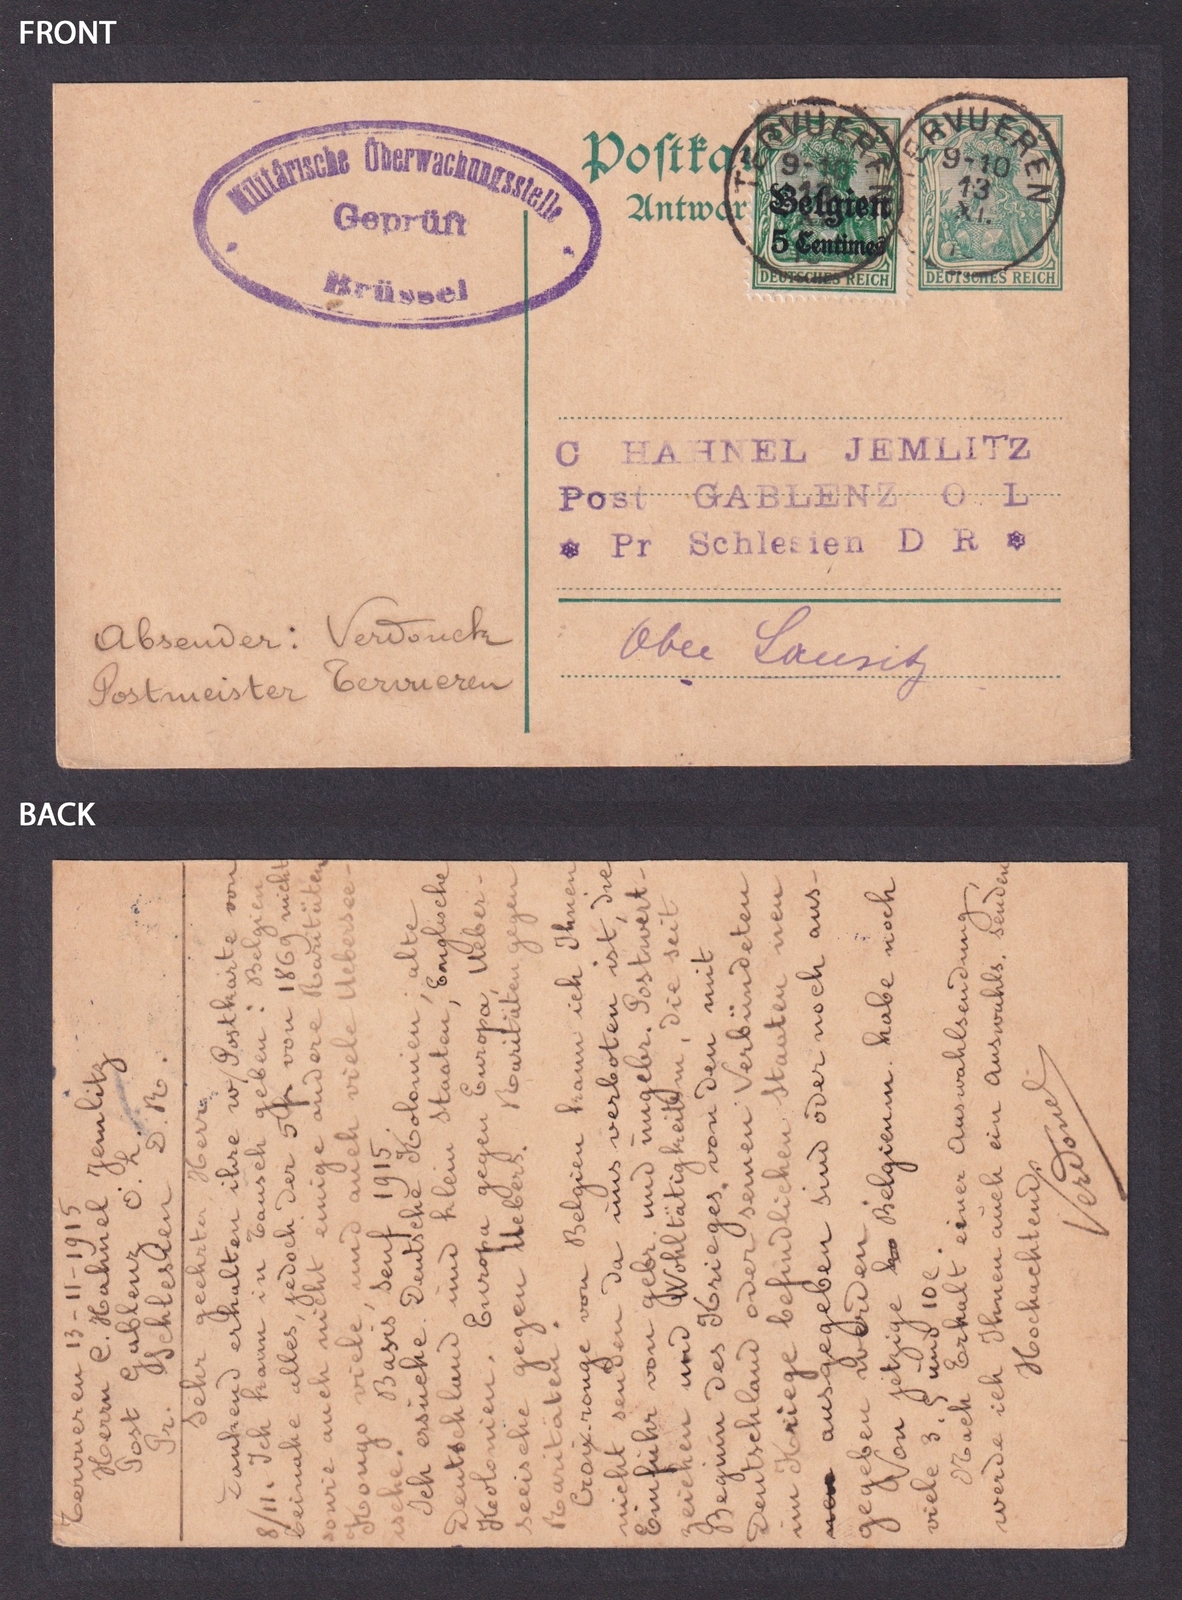 FRONT
Militärische Überwachungsstelle
Geprüft
Brüssel
Postka
Antwor
TERVUEREN
9-10
13
XI.
TERVUEREN
9-10
13
XI.
Belgien
5 Centimes
DEUTSCHES REICH
DEUTSCHES REICH
C HAHNEL JEMLITZ
Post GABLENZ O L
Pr Schlesien D R
Ober Lausitz
Absender: Verdonck
Postmeister Tervueren
BACK
Tervueren 13-11-1915
Herrn C. Hahnel Jemlitz
Post Gablenz O. L.
Pr. Schlesien D. R.
Sehr geehrter Herr
Dankend erhalten ihre w/Postkarte von
8/11. Ich kann in Tausch geben: Belgien
beinahe alles, jedoch der 5 fr von 1869 nicht
sowie auch nicht einige andere Raritäten
Kongo viele, und auch viele Ueberseeische. Basis Senf 1915
Ich ersuche Deutsche Kolonien, alte
Deutschland und klein Staaten, Englische
Kolonien. Europa gegen Europa, Ueberseeische gegen Uebers. Raritäten gegen
Raritäten.
Croix-rouge von Belgien kann ich Ihnen
nicht senden da uns verboten ist, die
Einfuhr von gebr. und ungebr. Postwertzeichen und Wohltätigkeitsm, die seit
Beginn des Krieges, von den mit
Deutschland oder seinen Verbündeten
im Kriege befindlichen Staaten neu
ausgegeben sind oder noch ausgegeben werden
Von jetzige Belgienm. habe noch
viele 3. 5 und 10 c.
Nach Erhalt einer Auswahlsendung,
werde ich Ihnen auch ein Auswahls. senden
Hochachtend,
Verdonck